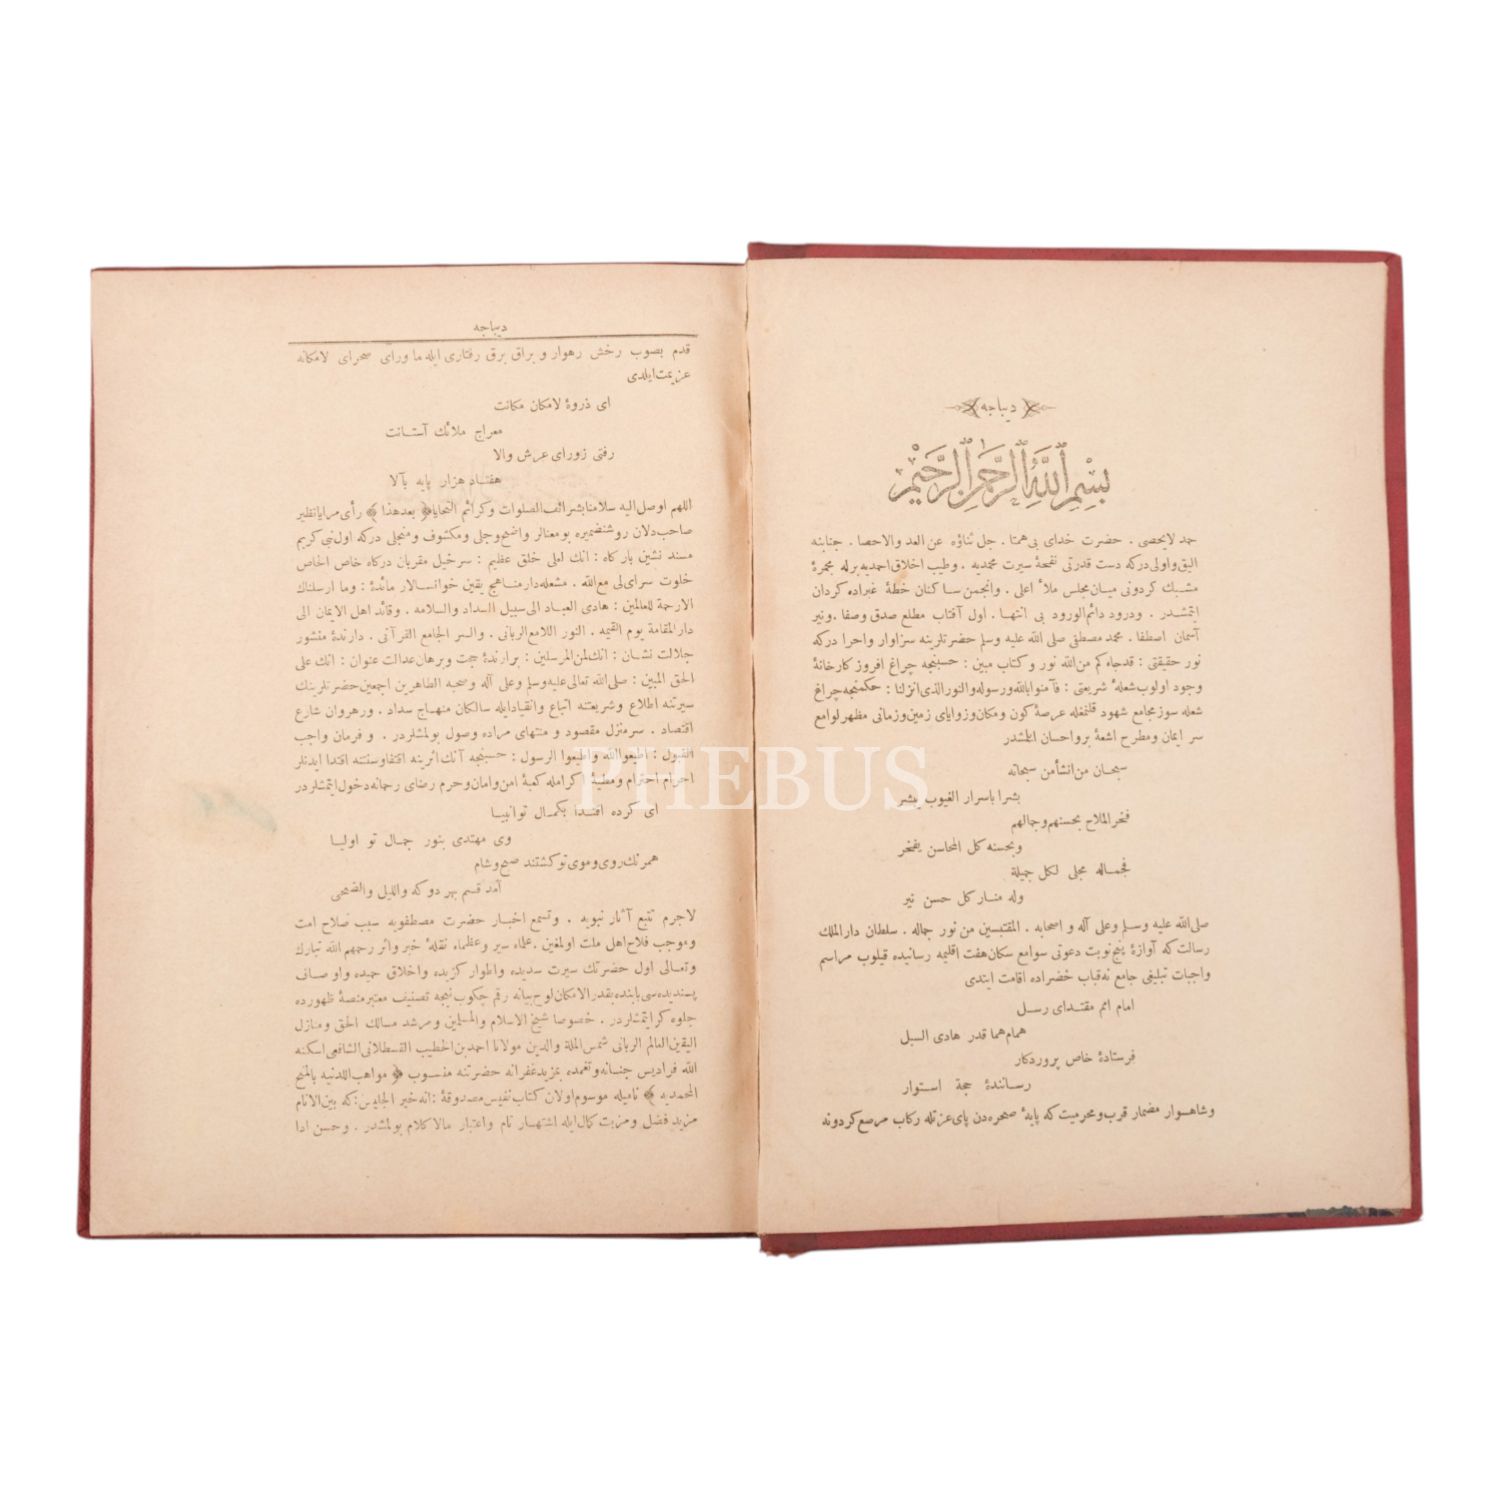 ديباجه
بسم الله الرحمن الرحيم
حمد لايحصى . حضرت خداى بى همتا . جل ثناؤه عن العد والاحصا . جنابنه
اليق واولى دركه دست قدرتى نفحهٔ سيرت محمديه . وطيب اخلاق احمديه برله مجمرهٔ
مشبك كردونى ميان مجلس ملأ اعلى . وانجمن ساكنان خطهٔ غبراده كردان
ايتمشدر . ودرود دائم الورود بى انتها . اول آفتاب مطلع صدق وصفا . ونير
آسمان اصطفا . محمد مصطفى صلى الله عليه وسلم حضرتلرينه سزاوار واحرا دركه
نور حقيقتى : قدجاءكم من الله نور وكتاب مبين : حسبنجه چراغ افروز كارخانهٔ
وجود اولوب شعلهٔ شريعتى : فآمنوا بالله ورسوله والنور الذى انزلنا : حكمنجه چراغ
شعله سوز مجامع شهود قلنمغله عرصهٔ كون ومكان وزواياى زمين وزمانى مظهر لوامع
سر ايمان ومطرح اشعهٔ بر واحسان ائلمشدر
سبحان من انشأ من سبحانه
بشرا باسرار الغيوب يبشر
فخر الملاح بحسنهم وجمالهم
وبحسنه كل المحاسن يفخر
فجماله مجلى لكل جميلة
وله منار كل حسن نير
صلى الله عليه وسلم وعلى آله واصحابه . المقتبسين من نور جماله . سلطان دار الملك
رسالت كه آوازهٔ پنج نوبت دعوتى سوامع سكان هفت اقليمه رسانيده قيلوب مراسم
واجبات تبليغى جامع نه قباب خضراده اقامت ايتدى
امام امم مقتداى رسل
همام هما قدر هادى السبل
فرستادهٔ خاص پروردكار
رسانندهٔ حجة استوار
وشاهسوار مضمار قرب ومحرميت كه پايهٔ صخره دن پاى عزتله ركاب مرصع كردونه
ديباجه
قدم بصوب رخش رهوار وبراق برق رفتارى ايله ما وراى صحراى لامكانه
عزيمت ايلدى
اى ذروهٔ لامكان مكانت
معراج ملائك آستانت
رفتى زوراى عرش والا
هفتاد هزار پايه بآلا
اللهم اوصل اليه سلامنا بشرائف الصلوات وكرائم التحايا ﴿ بعد هذا ﴾ رأى مرايا نظير
صاحب دلان روشنضميره بو معنالر واضح وجلى ومكشوف ومنجلى دركه اول نبى كريم
مسند نشين باركاه : انك لعلى خلق عظيم : سرخيل مقربان دركاه خاص الخاص
خلوت سراى لى مع الله . مشعله دار مناهج يقين خوانسالار مائدهٔ : وما ارسلناك
الارحمة للعالمين : هادى العباد الى سبيل السداد والسلامه . وقائد اهل الايمان الى
دار المقامة يوم القيمه . النور اللامع الربانى . والسر الجامع القرآنى . دارندهٔ منشور
جلالت نشان : انك لمن المرسلين : برارندهٔ حجت وبرهان عدالت عنوان : انك على
الحق المبين : صلى الله تعالى عليه وسلم وعلى آله وصحبه الطاهرين اجمعين حضرتلرينك
سيرتنه اطلاع وشريعتنه اتباع وانقياد ايله سالكان منهاج سداد . ورهروان شارع
اقتصاد . سرمنزل مقصود ومنتهاى مراده وصول بولمشلردر . وفرمان واجب
القبول : اطيعوا الله واطيعوا الرسول : حسبنجه آنك اثرينه اقتفا وسنتنه اقتدا ايدنلر
احرام احترام ومطيهٔ اكرامله كعبهٔ امن وامان وحرم رضاى رحمانه دخول ايتمشلردر
اى كرده اقتدا بكمال تو انبيا
وى مهتدى بنور جمال تو اوليا
همرنك روى وموى تو كشتند صبح وشام
آمد قسم بهر دو كه والليل والضحى
لاجرم تتبع آثار نبويه . وتسمع اخبار حضرت مصطفويه سبب صلاح امت
وموجب فلاح اهل ملت اولمغين . علماء سير وعظماء نقلهٔ خبر واثر رحمهم الله تبارك
وتعالى اول حضرتك سيرت سديده واطوار كزيده واخلاق حميده واوصاف
پسنديده سى بابنده بقدر الامكان لوح بيانه رقم چكوب نيجه تصنيف معتبر منصهٔ ظهورده
جلوه كر ايتمشلردر . خصوصا شيخ الاسلام والمسلمين ومرشد مسالك الحق ومنازل
اليقين العالم الربانى شمس الملة والدين مولانا احمد بن الخطيب القسطلانى الشافعى اسكنه
الله فراديس جنانه وتغمده بمزيد غفرانه حضرتنه منسوب ﴿ مواهب اللدنيه بالمنح
المحمديه ﴾ ناميله موسوم اولان كتاب نفيس مصدوقهٔ : انه خير الجليس : كه بين الانام
مزيد فضل ومزيت كمال ايله اشتهار تام واعتبار مالا كلام بولمشدر . وحسن ادا
PHEBUS